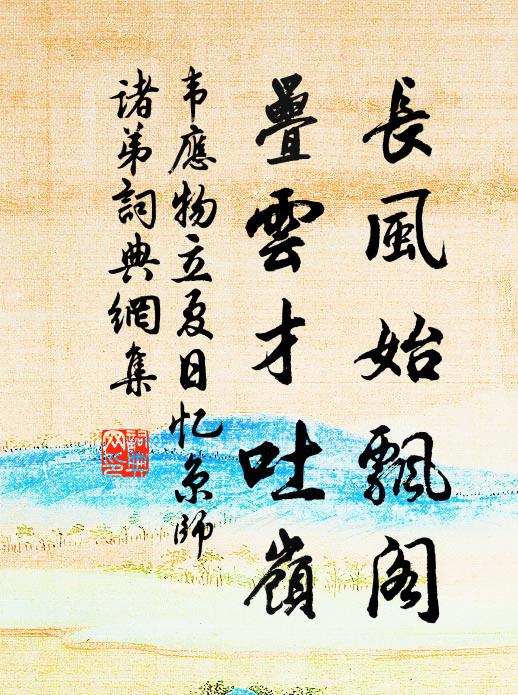 長風始飄閣
疊雲才吐嶺
韦應物立夏日忆京師
諸弟詞典網集